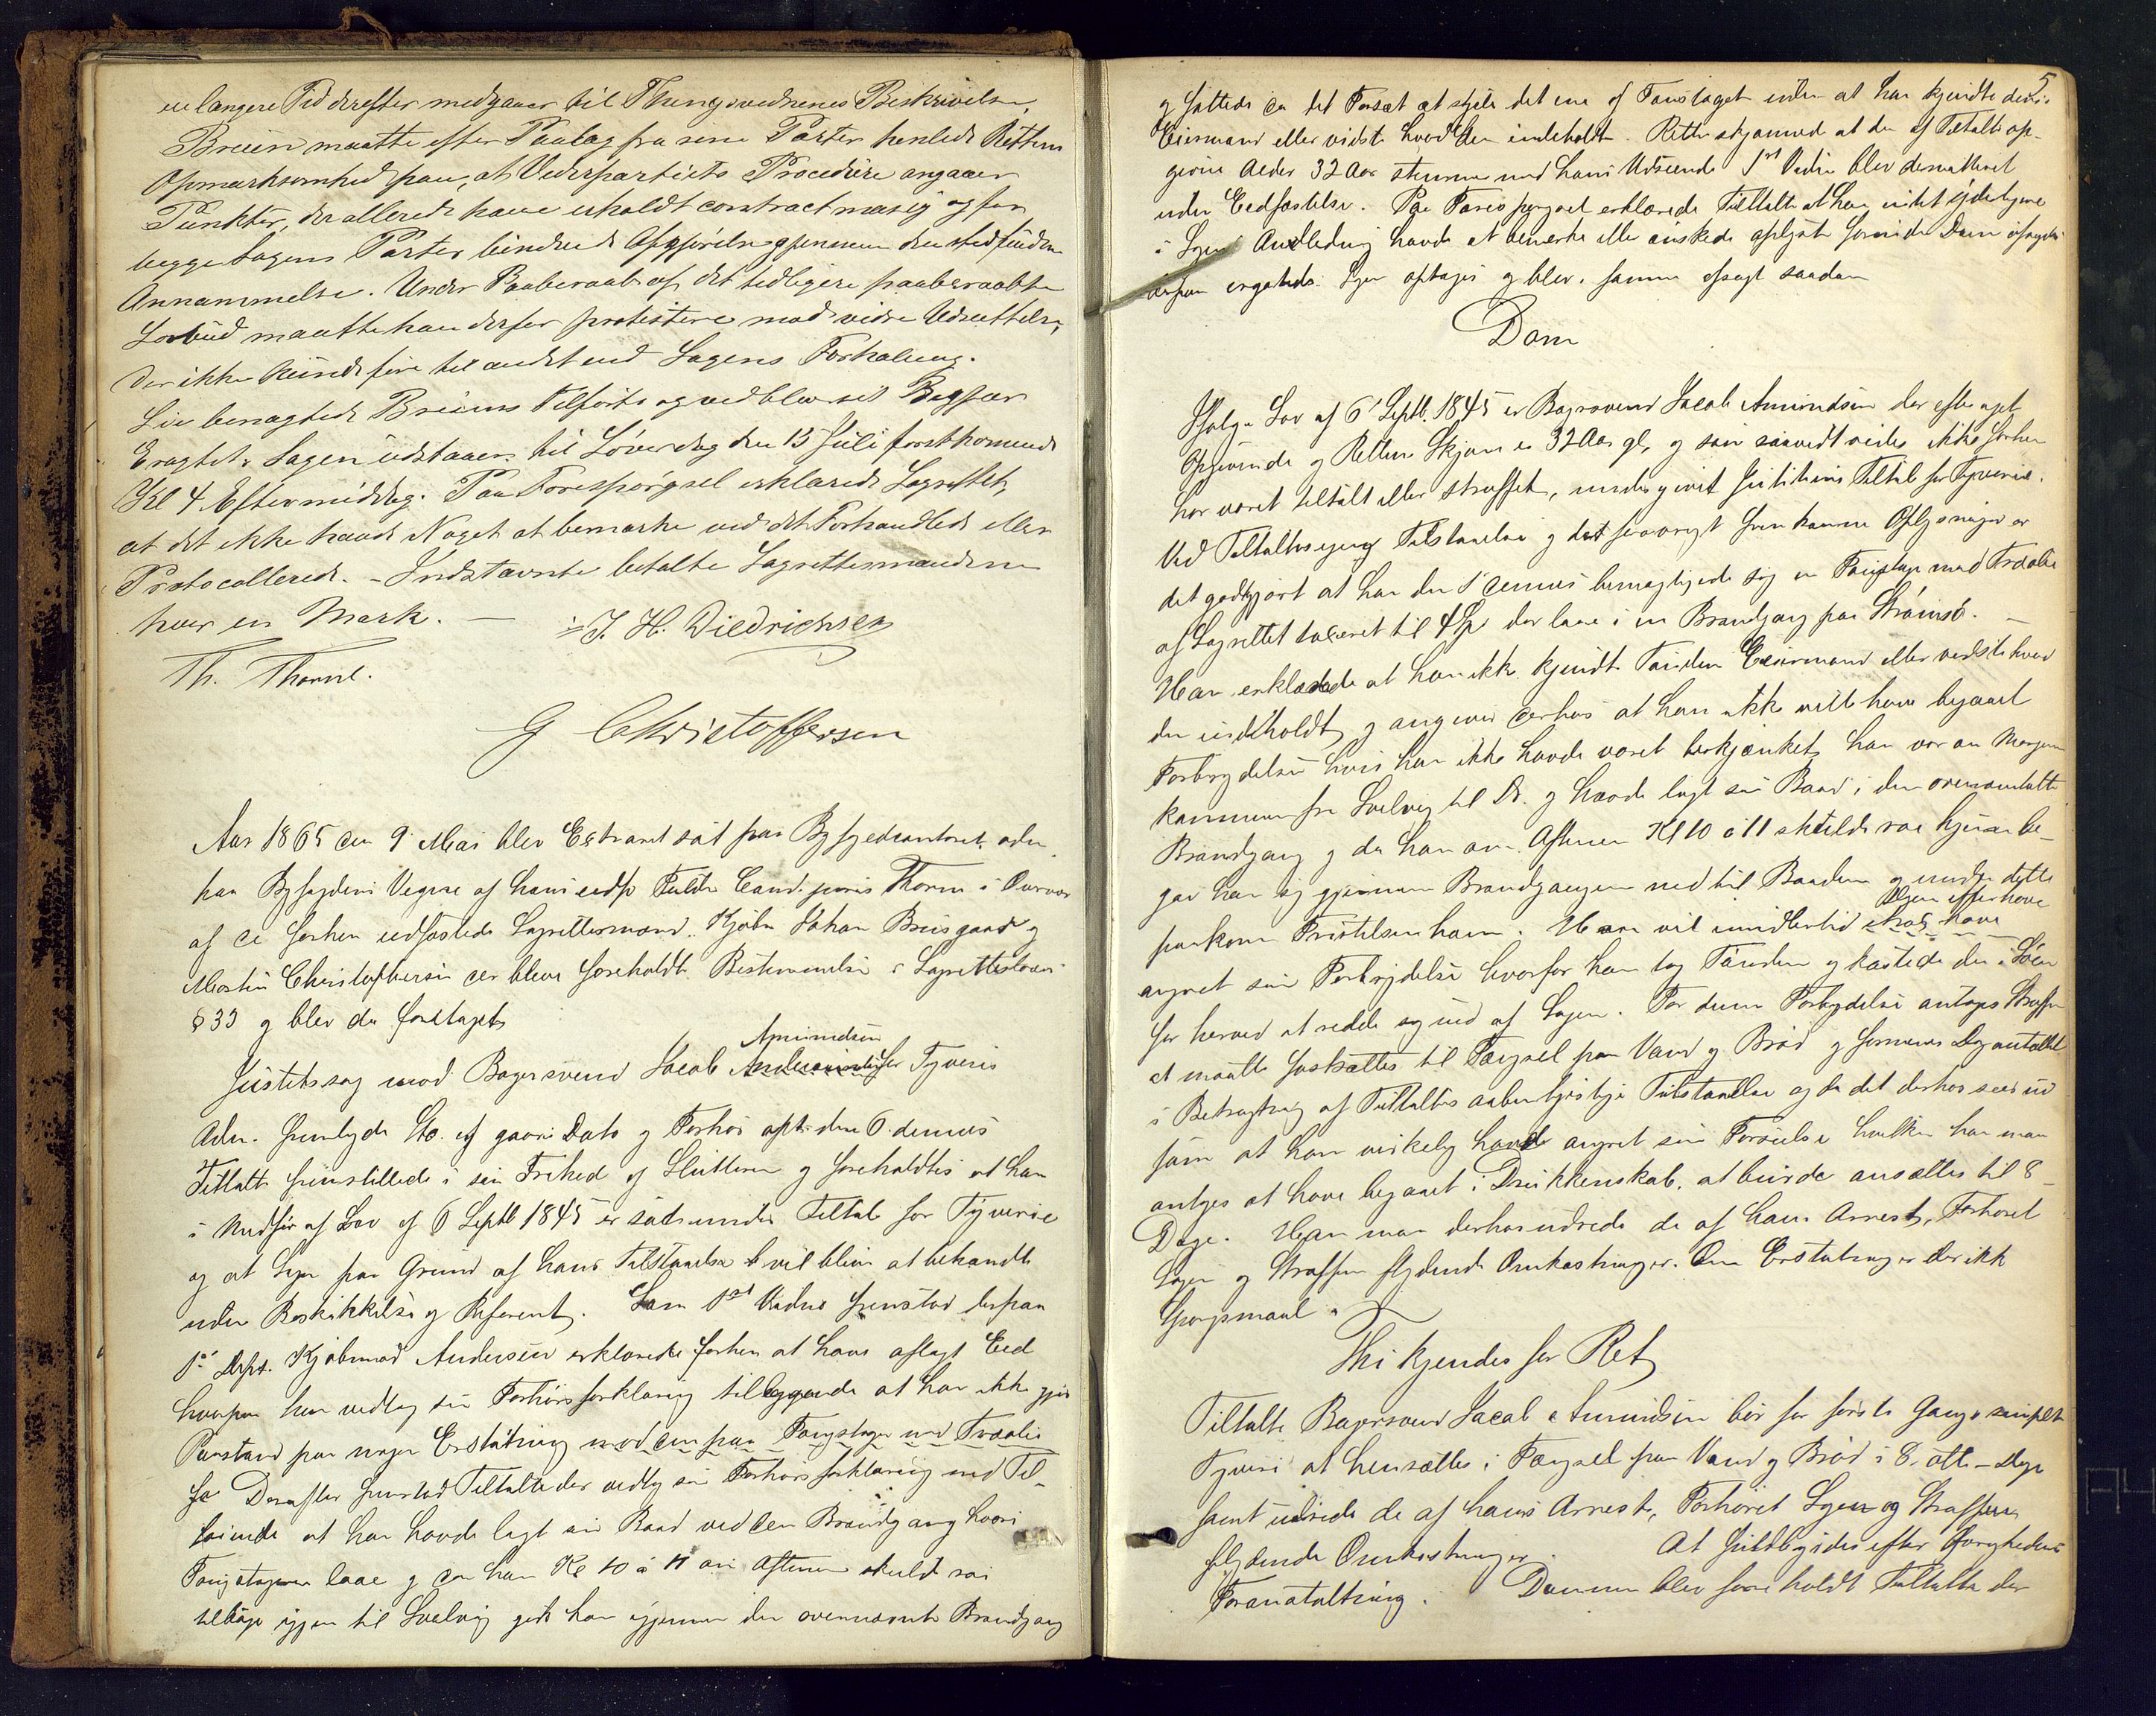 en længere Tid derefter medgaaer til Thingsvidnenes Beskrivelse,
Bruun maatte efter Paalæg fra sine Parter henlede Rettens
Opmærksomhed paa, at Vederpartiets Procedure angaaer
Punkter, der allerede have erholdt contractmæssig og for
begge Sagens Parter bindende Afgjørelse gjennem den stedfundne
Annammelse. Under Paaberaab af det tidligere paaberaabte
Forbud maatte han derfor protestere mod videre Udsættelse,
der ikke kunde føre til andet end Sagens Forhaling.
Lie benægtede Bruuns Tilførte og vedblev sit Begjær
Eragtet. Sagen udstaaer til Løverdag den 15 Juli førstkommende
Kl 4 Eftermiddag. Paa Forespørgsel erklærede Lagrettet,
at det ikke havde Noget at bemærke ved det Forhandlede eller
Protocollerede. - Indstævnte betalte Lagrettesmændene
hver en Mark. —
J. H. Diedrichsen
Th. Thorne.
G Christoffersen
Aar 1865 den 9 Mai blev Extraret sat paa Byfogedcontoret, adm.
paa Byfogdens Vegne af hans edsv. Fuldm. Cand. juris Thorne i Overvær
af de forhen edfæstede Lagrettesmænd. Kjøbm Johan Brusgaard og
Martin Christophersen der bleve foreholdt Bestemmelsen i Lagrettesloven
§ 33 og blev da foretaget
Amundsen
Justitssag mod Bagersvend Jacob for Tyveri
Adm. fremlagde Sto. af gaars Dato og Forhør opt. den 6. dennes
Tiltalte fremstilledes i sin Frihed og Sluttere og foreholdtes at han
i Medfør af Lov af 6 Septb 1845 er sat under Tiltale for Tyverie
og at Sagen paa Grund af hans Tilstaaelse vil blive at behandle
uden Beskikkelse af Referent. Som 1ste Vidne fremstod derpaa
1ste Dept. Kjøbmand Andersen erklærede forhen at have aflagt Eed
hvorpaa han vedtog sin Forhørsforklaring tillæggende at han ikke gjør
Paastand paa nogen Erstatning
Derefter fremstod Tiltalte der vedtog sin Forhørsforklaring med Til-
føiende at han havde lagt sin Baad ved den Brandgang hvori
Faustagerne laae og da han Kl 10 à 11 om Aftenen skulde roe
tilbage igjen til Svelvig gik han igjennem den ovennævnte Brandgang
5
og fattede da det Forsæt at stjele det ene af Faustaget uden at han kjendte dens
Eiermand eller vidste hvad den indeholdt. Retten skjønnede at den af Tiltalte op-
givne Alder 32 Aar stemmer med hans Udseende 1ste Vidne blev demitteret
uden Eedfæstelse. Paa Forespørgsel erklærede Tiltalte at han intet yderligere
i Sagens Anledning havde at bemærke eller ønskede oplyst forinden Dom afsagdes
Sagen optages og blev i samme afsagt saadan
Dom
Ifølge Lov af 6' Septb. 1845 er Bagersvend Jacob Amundsen der efter eget
Opgivende og Rettens Skjøn er 32 Aar gl, og som saavidt vides ikke forhen
har været tiltalt eller straffet, undergivet Justitiens Tiltale for Tyverie.
Ved Tiltaltes egen Tilstaaelse og det forøvrigt fremkomne Oplysninger er
det godtgjort at han den 5 dennes bemægtigede sig en Faustage med
af Lagrettet taxeret til der laae i en Brandgang paa Strømsø. —
Han erklærede at han ikke kjendte Tønden Eiermand eller vidste hvad
den indeholdt og angiver derhos at han ikke ville have begaaet
Forbrydelsen hvis han ikke havde været beskjænket, han var om Morgenen
kommen fra Svelvig til Dr. og havde lagt sin Baad i den ovenomtalte
Brandgang og da han om Aftenen Kl 10 à 11 skulde roe hjem be-
gav han sig gjennem Brandgangen ned til Baaden og under dette
paakom Fristelsen ham. Han vil imidlertid strax have
angret sin Forbrydelse hvorfor han tog Tønden og kastede den i Søen
for herved at redde sig ud af Sagen. For denne Forbrydelse antages Straffen
at maatte fastsættes til Fængsel paa Vand og Brød og formenes Dagantallet
i Betragtning af Tiltaltes aabenhjertige Tilstaaelse og da det derhos seer ud
som at han virkelig havde angret sin Forseelse hvilken han maa
antages at have begaaet i Drukkenskab, at burde ansættes til 8
Dage. Han maa derhos udrede de af hans Arrest, Forhøret
Sagen og Straffen flydende Omkostninger. Om Erstatning er der ikke
Spørgsmaal.
Thi kjendes for Ret
Tiltalte Bagersvend Jacob Amundsen bør for første Gang simpelt
Tyveri at hensættes i Fængsel paa Vand og Brød i 8. otte - Dage
samt udrede de af hans Arrest, Forhøret Sagen og Straffen
flydende Omkostninger. At fuldbyrdes efter Øvrighedens
Foranstaltning. Dommen blev foreholdt Tiltalte der